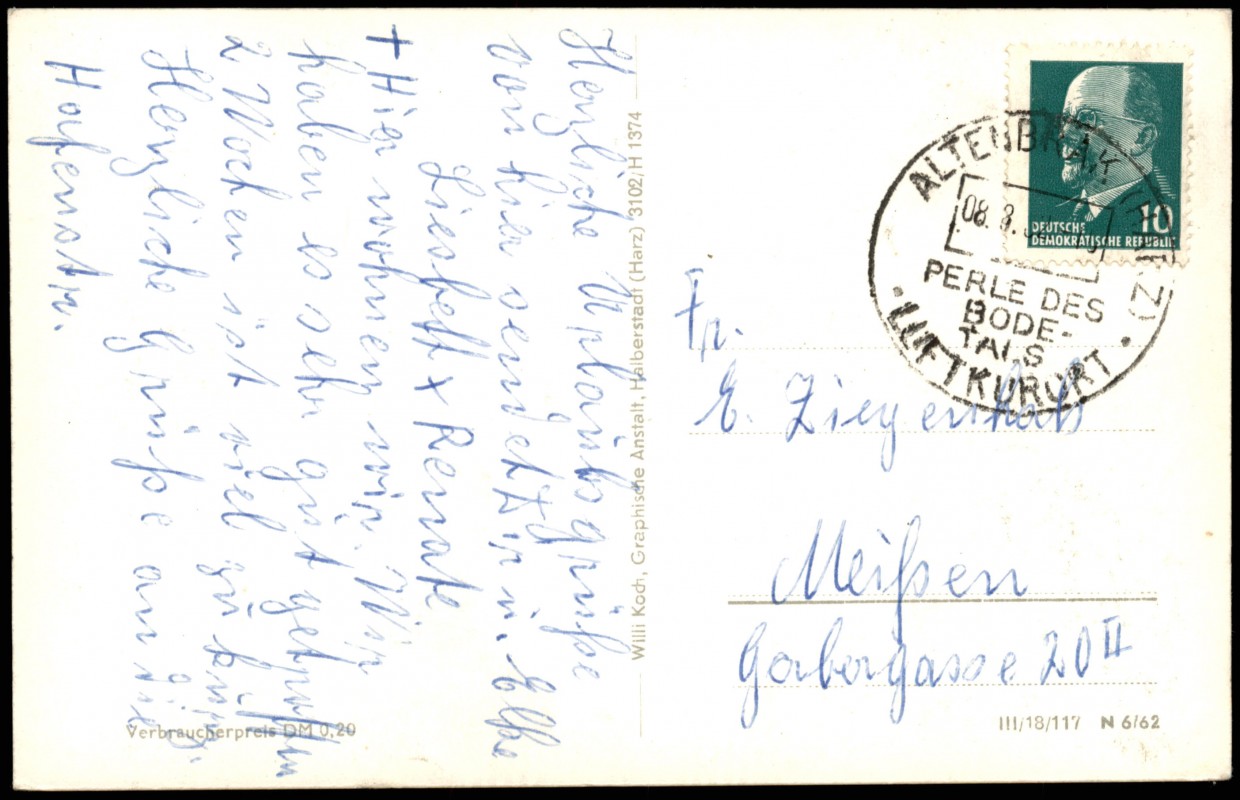 Herzliche Urlaubsgrüße
von hier sendet Dir u. Elke
Liesbett + Renate
+ Hier wohnen wir. Wir
haben es sehr gut getroffen
2 Wochen ist viel zu kurz.
Herzliche Grüße an die
Hafenstr.
Willi Koch, Graphische Anstalt, Halberstadt (Harz) 3102/H 1374
Verbraucherpreis DM 0,20
DEUTSCHE
DEMOKRATISCHE REPUBLIK
10
ALTENBRAK (HARZ)
08. 8.
PERLE DES
BODE-
TALS
LUFTKURORT
Fr.
E. Ziegenhals
Meißen
Gerbergasse 20 II
III/18/117 N 6/62